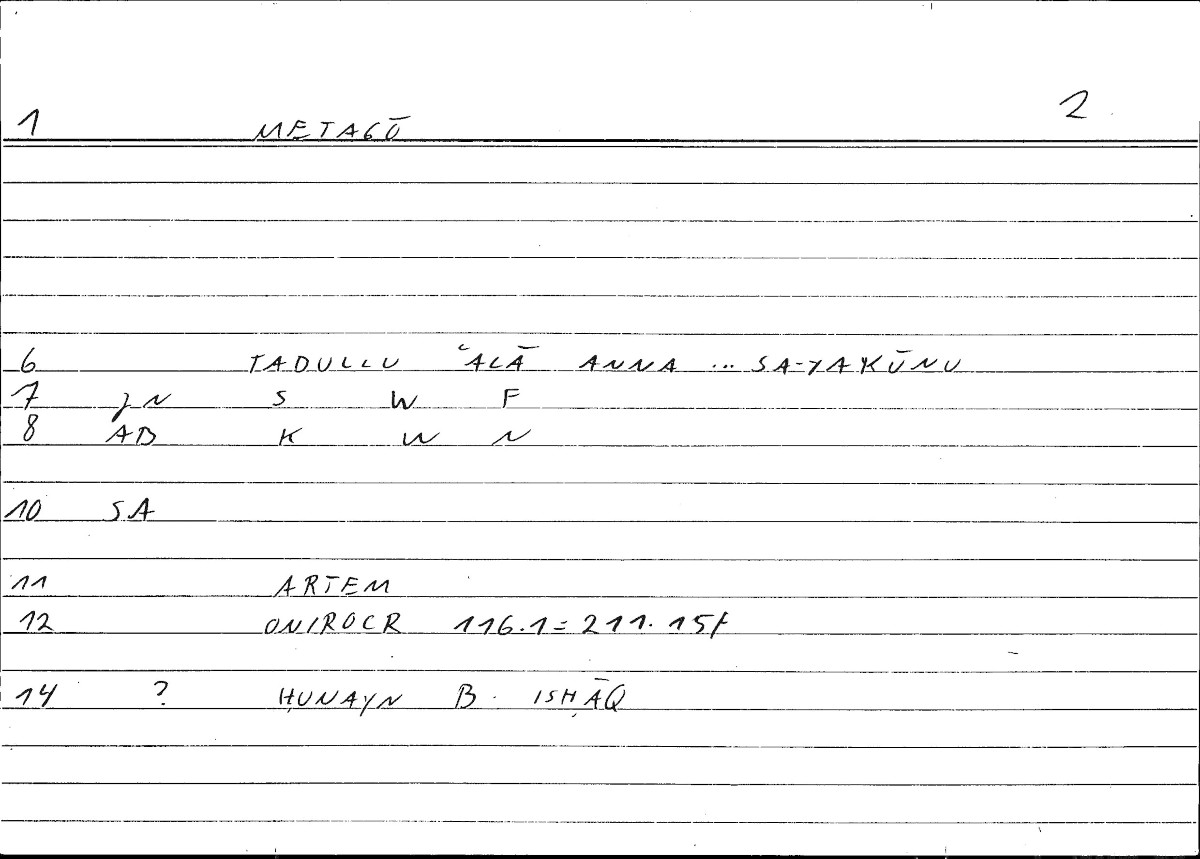 1 METAGŌ 2
6 TADULLU ʿALĀ ANNA ... SA-YAKŪNU
7 JN S W F
8 AB K W N
10 SA
11 ARTEM
12 ONIROCR 116.1 = 211.15f
14 ? ḤUNAYN B. ISḤĀQ